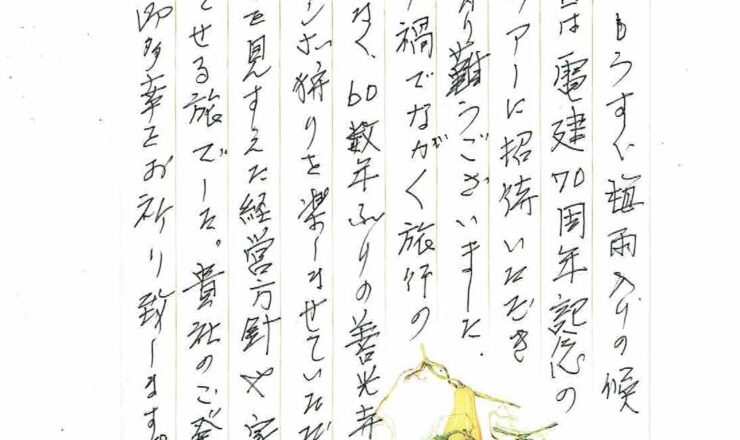 もうすぐ梅雨入りの候
は電建70周年記念の
アーに招待いただき
り難うございました。
禍でながく旅行の
なく、60数年ぶりの善光寺
狩りを楽しませていただ
を見すえた経営方針や家
せる旅でした。貴社のご発
多幸をお祈り致します。